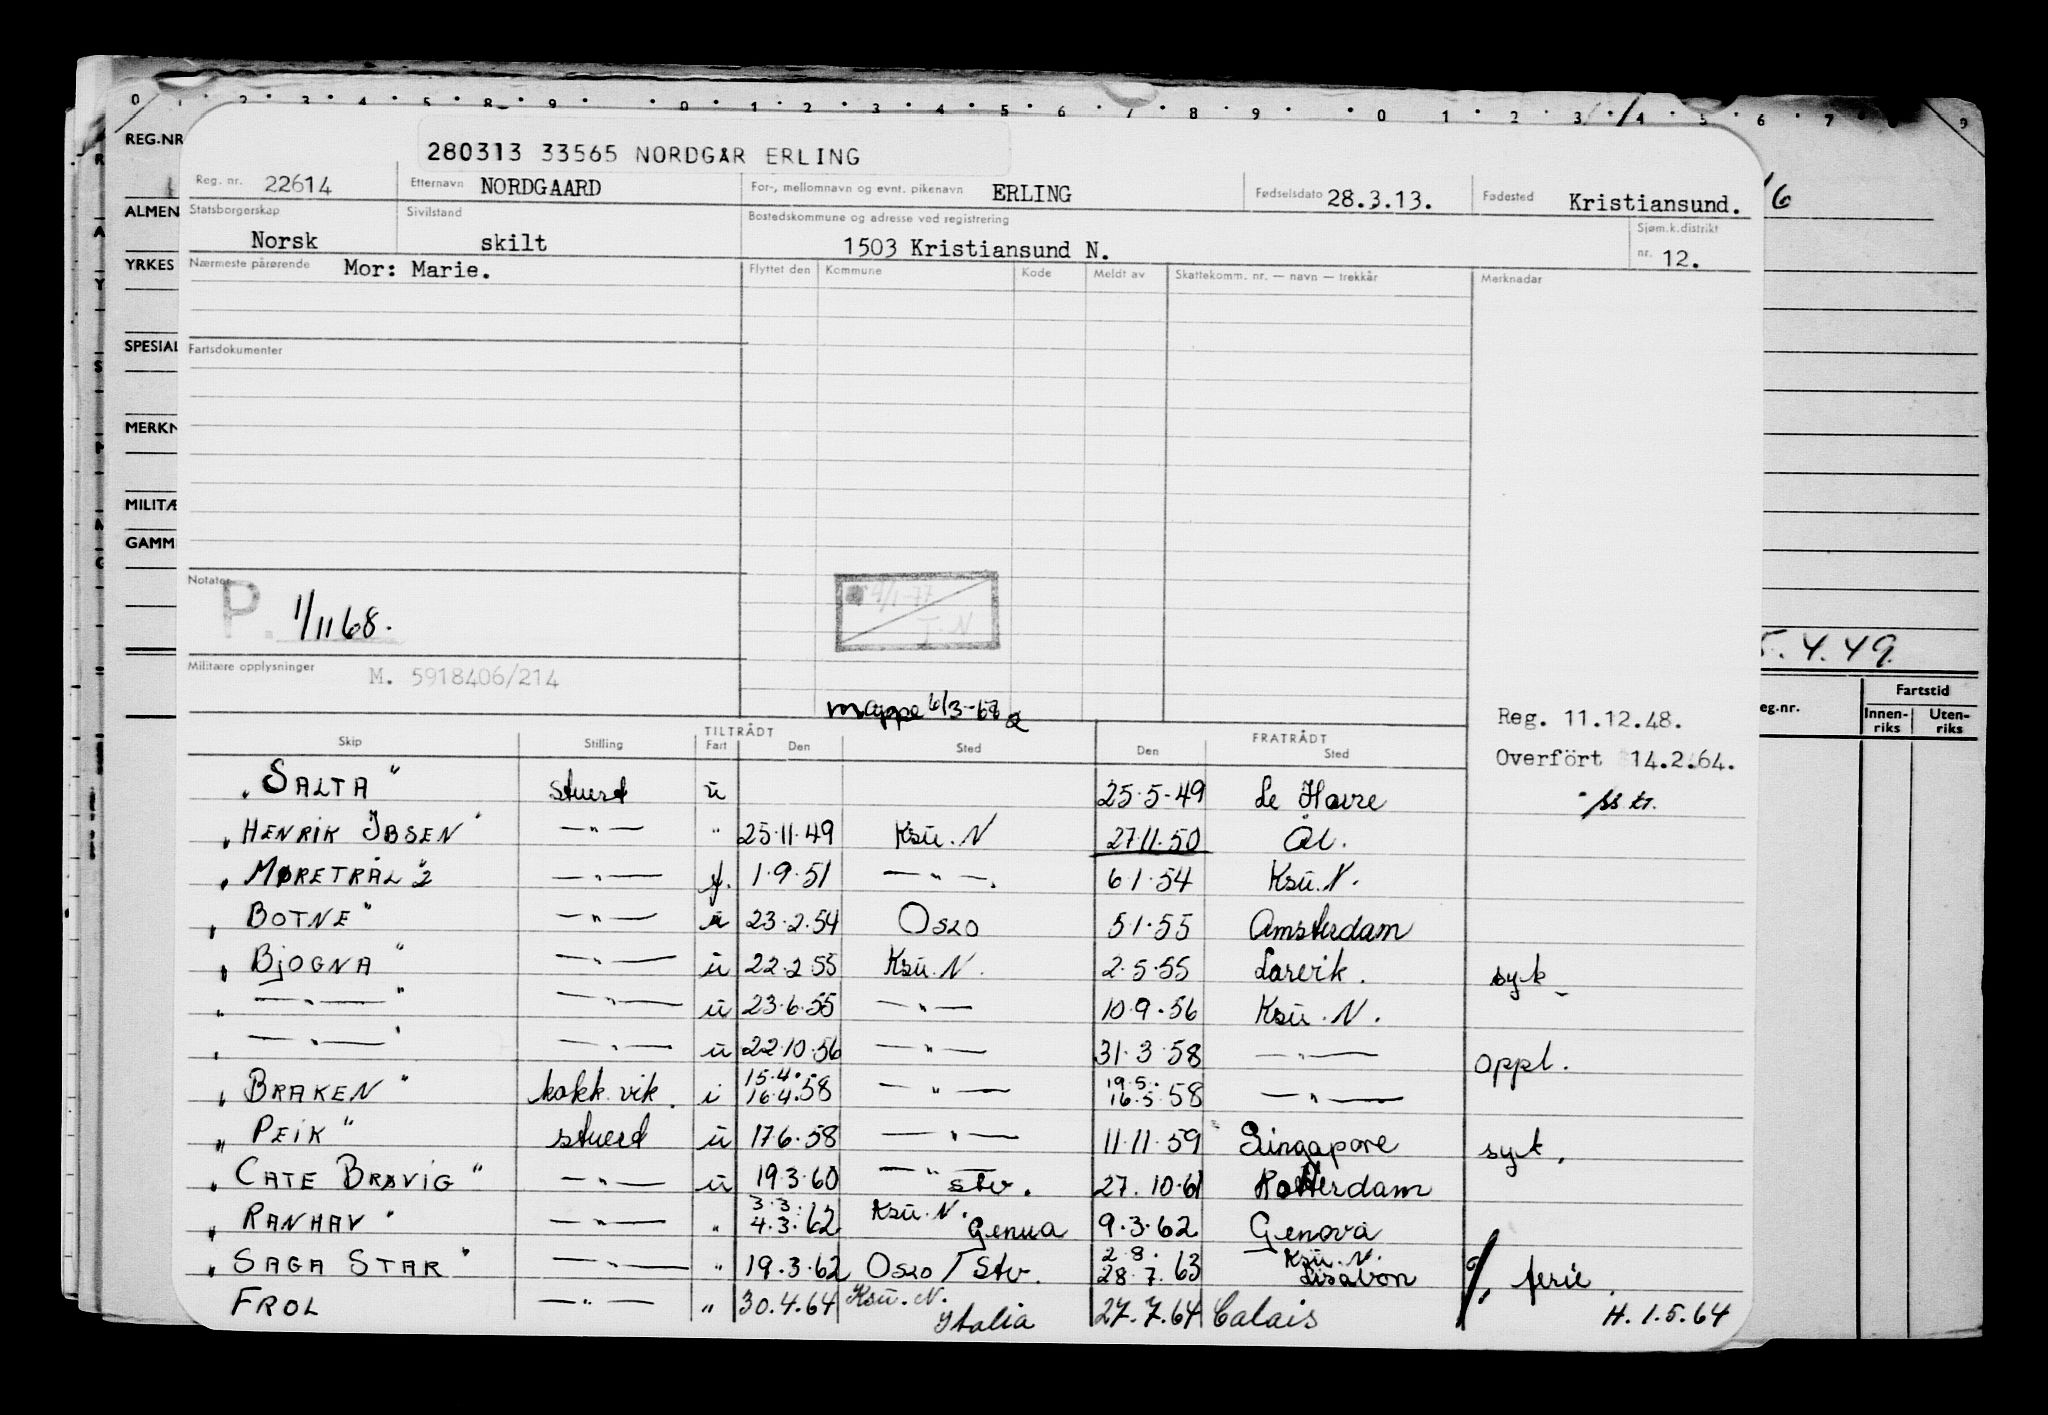 0 1 2 3 4 5 8 9 0 1 2 3 4 5 6 7 8 9 0 1 2 3 4 5 6 7 9
REG.NR
280313 33565 NORDGAR ERLING
Reg. nr. 22614 Etternavn NORDGAARD For-, mellomnavn og evnt. pikenavn ERLING Fødselsdato 28.3.13. Fødested Kristiansund. 6
ALMEN Statsborgerskap Norsk Sivilstand skilt Bostedskommune og adresse ved registrering 1503 Kristiansund N. Sjøm.k.distrikt nr. 12.
YRKES Nærmeste pårørende Mor: Marie. Flyttet den Kommune Kode Meldt av Skattekomm. nr. — navn — trekkår Merknader
SPESIAL Fartsdokumenter
MERKN
MILITÆ
GAMM
Notater P. 1/11 68. 4/1-77
I.N
5.4.49.
Militære opplysninger M. 5918406/214
mappe 6/3-68
Reg. 11.12.48.
Overført 14.2.64.
eg.nr. Fartstid
Innen-riks Uten-riks
TILTRÅDT FRATRÅDT
Skip Stilling Fart Den Sted Den Sted
"SALTA" stuerd u 25.5-49 Le Havre
"HENRIK IBSEN" —"— " 25.11.49 Ksu. N 27.11.50 Ål.
"MØRETRÅL 2" —"— f. 1.9.51 —"—. 6.1.54 Ksu. N.
"BOTNE" —"— u 23.2.54 Oslo 5.1.55 Amsterdam
"BJOGNA" —"— u 22.2.55 Ksu. N. 2.5.55 Larvik. syk
"—"—" —"— u 23.6.55 —"— 10.9.56 Ksu. N.
"—"—" —"— u 22.10.56 —"— 31.3.58 —"— oppl.
"BRAKEN" kokk. vik. i 15.4. 16.4.58 —"— 19.5. 16.5.58 —"—
"PEIK" stuerd u 17.6.58 —"— 11.11.59 Singapore syk.
"CATE BRØVIG" —"— u 19.3.60 —"— stv. 27.10.61 Rotterdam
"RANHAV" —"— " 3.3. 4.3.62 Ksu. N. Genua 9.3.62 Genova
"SAGA STAR" —"— " 19.3.62 Oslo / Stv. 2.8. 28.7.63 Ksu. N. Lisabon ferie.
FROL —"— " 30.4.64 Ksu. N. Italia 27.7.64 Calais H. 1.5.64